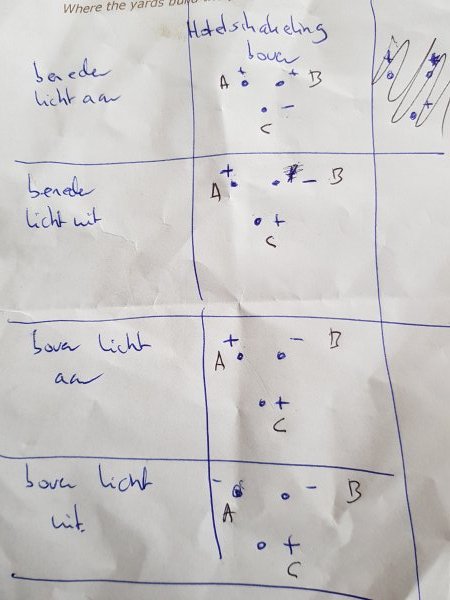 Where the yards build
Hotelschakeling
boven
beneden
licht aan
A + + B
-
C
beneden
licht uit
A + - B
+
C
boven licht
aan
A + - B
+
C
boven licht
uit.
A - - B
+
C